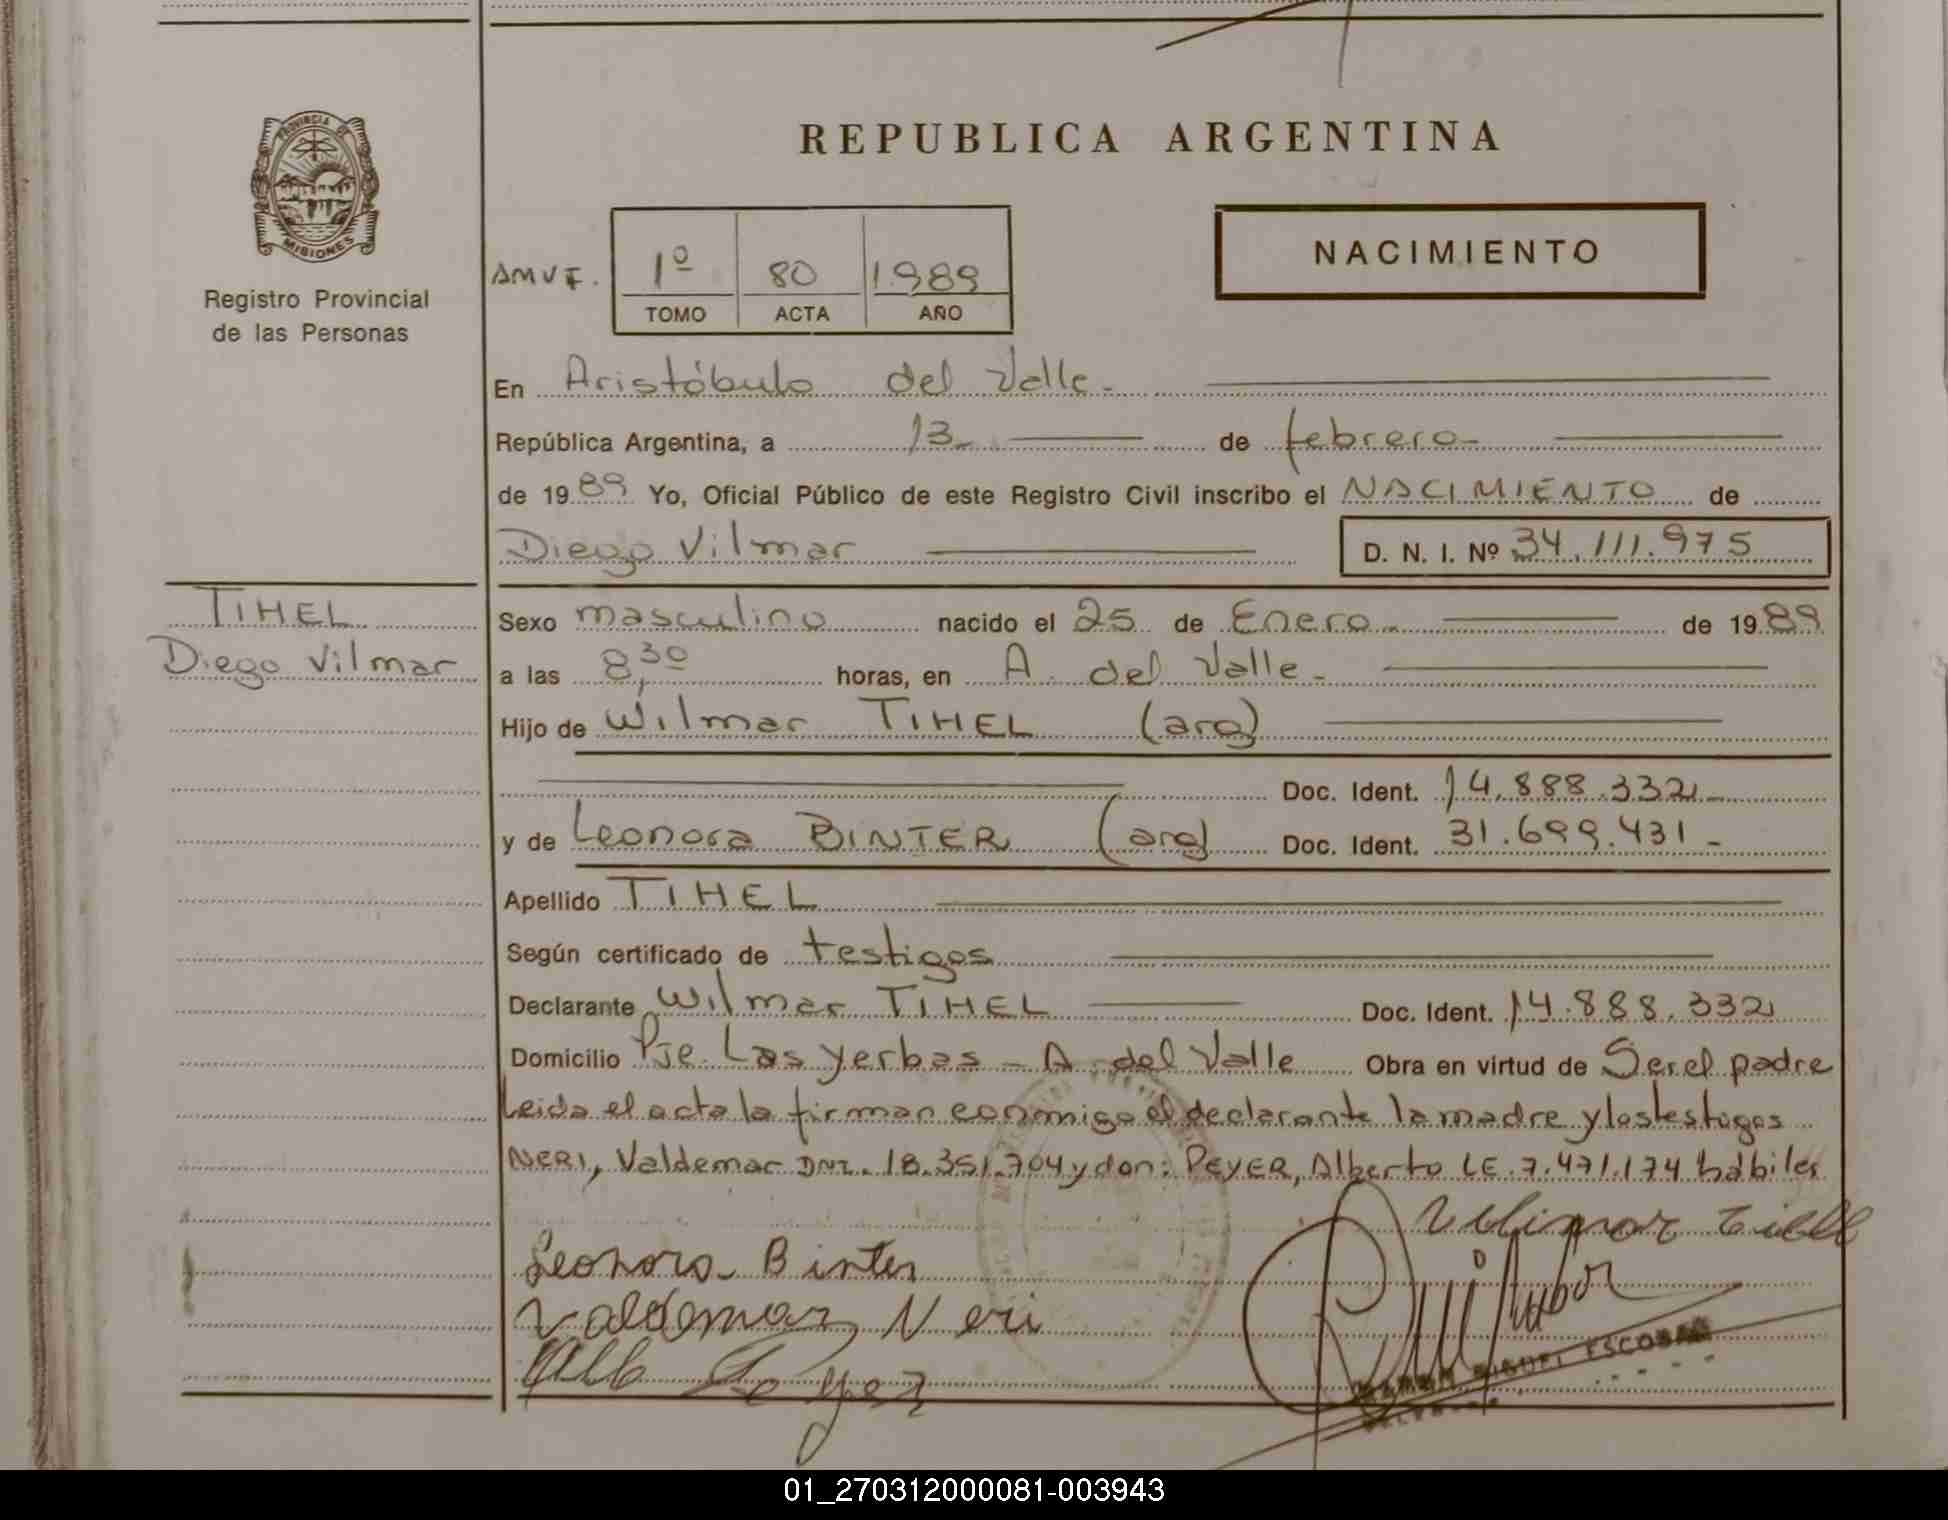 PROVINCIA DE
MISIONES
Registro Provincial
de las Personas
REPUBLICA ARGENTINA
NACIMIENTO
AMVF. 1º 80 1.989
TOMO ACTA AÑO
En Aristóbulo del Valle.
República Argentina, a 13 de febrero
de 1989 Yo, Oficial Público de este Registro Civil inscribo el NACIMIENTO de
Diego Vilmar D. N. I. Nº 34.111.975
TIHEL
Diego Vilmar
Sexo masculino nacido el 25 de Enero de 1989
a las 8,30 horas, en A. del Valle
Hijo de Wilmar TIHEL (arg)
Doc. Ident. 14.888.332
y de Leonora BINTER (arg) Doc. Ident. 31.699.431
Apellido TIHEL
Según certificado de testigos
Declarante Wilmar TIHEL Doc. Ident. 14.888.332
Domicilio Pje. Las Yerbas - A. del Valle Obra en virtud de Ser el padre
Leida el acta la firman conmigo el declarante la madre y los testigos
NERI, Valdemar DNI. 18.351.704 y don: PEYER, Alberto LE. 7.471.174 hábiles
Leonora Binter
Valdemar Neri
MIGUEL ESCOBAR
01_270312000081-003943